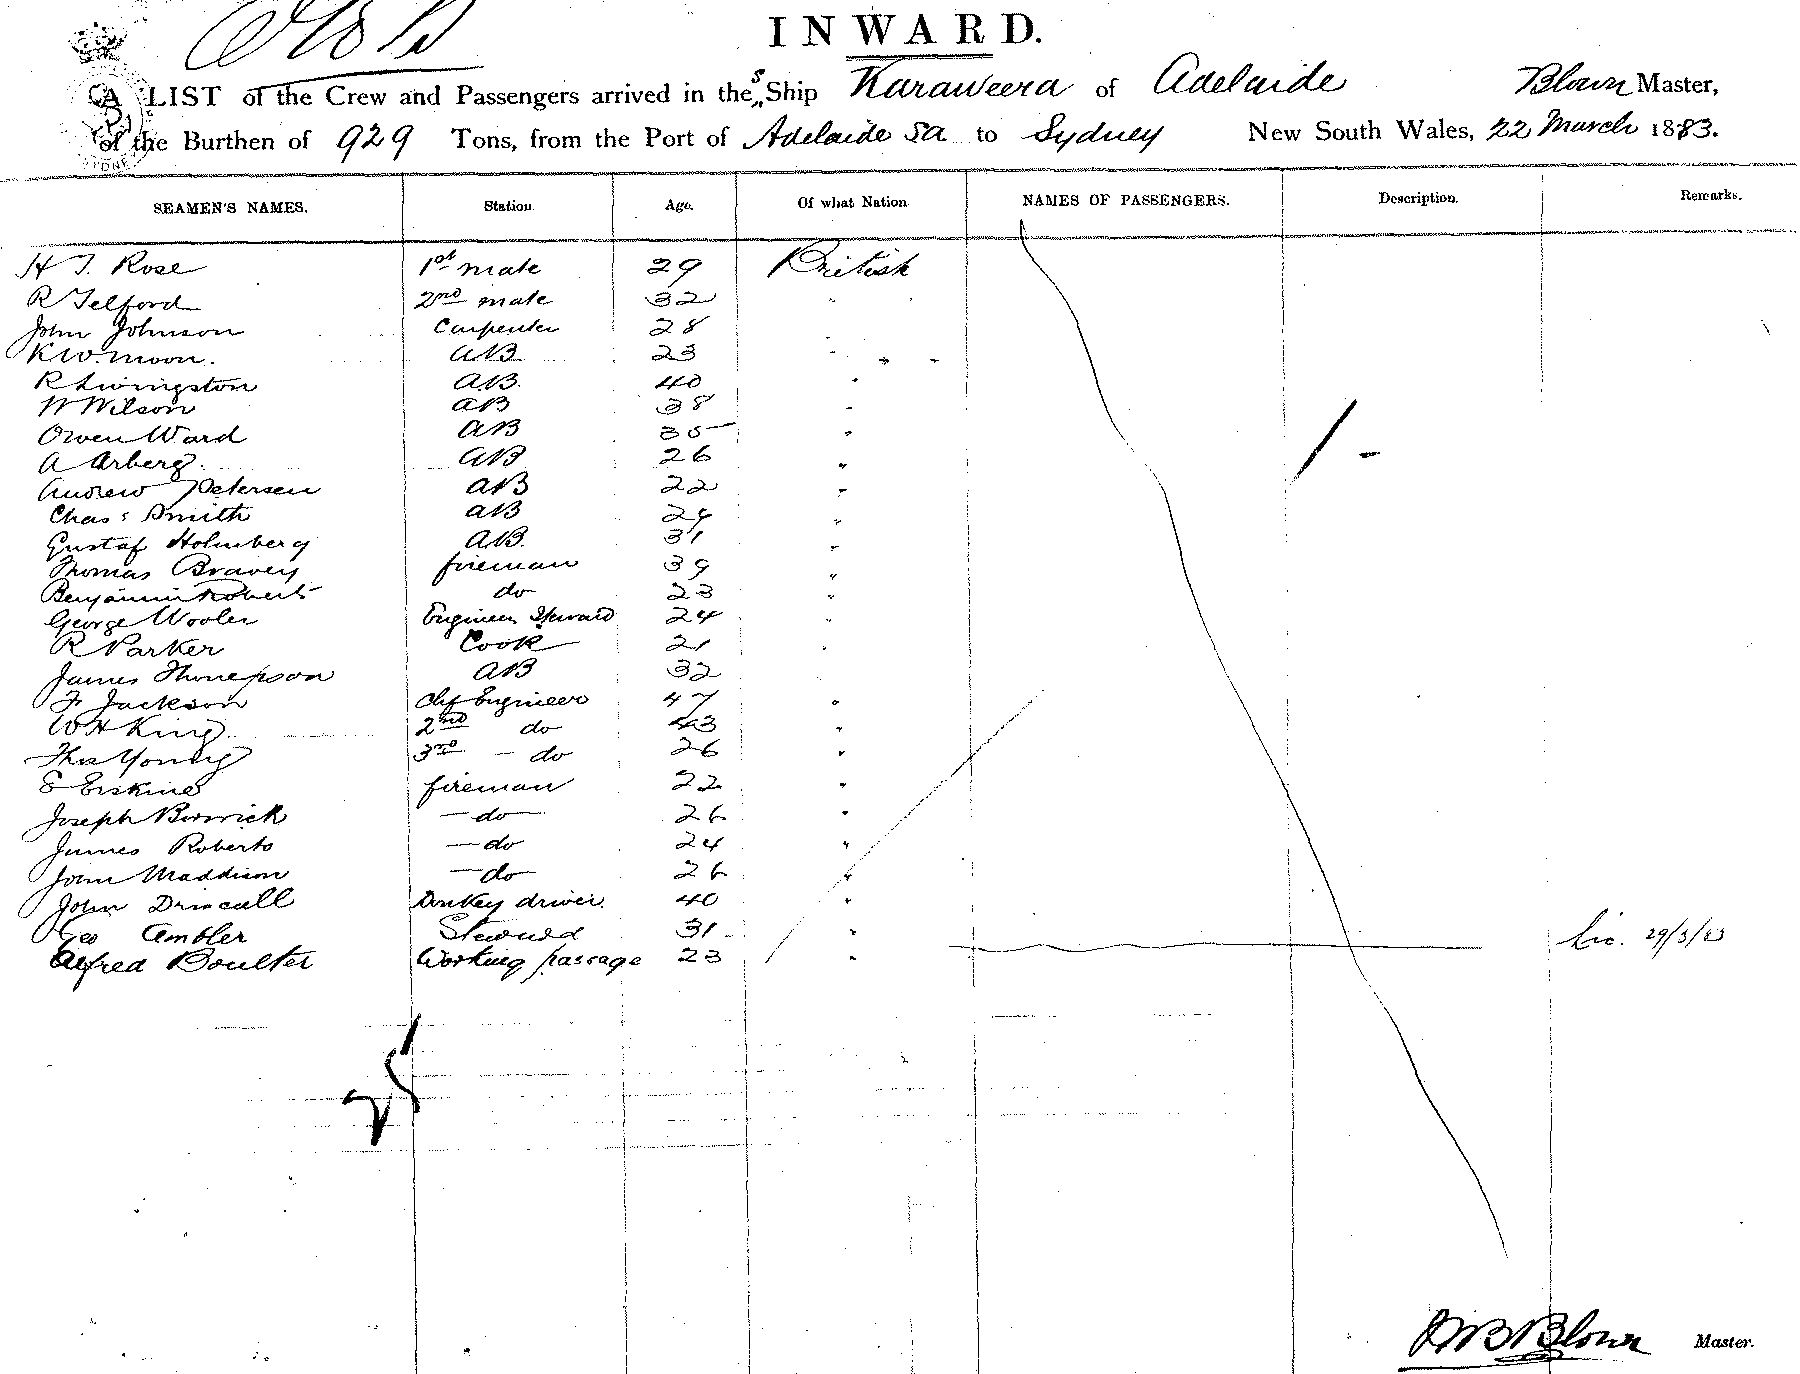 INWARD.
A LIST of the Crew and Passengers arrived in the S,, Ship Karaweera of Adelaide Blown Master,
of the Burthen of 929 Tons, from the Port of Adelaide SA to Sydney New South Wales, 22 March 1883.
SEAMEN'S NAMES. Station. Age. Of what Nation. NAMES OF PASSENGERS. Description. Remarks.
H T. Rose 1st mate 29 British
R Telford 2nd mate 32 "
John Johnson Carpenter 28
K W. Moon. AB 23 " "
R Livingston AB. 40 "
W Wilson AB 38 "
Owen Ward AB 35 "
A Arberg. AB 26 "
Andrew Petersen AB 22 "
Chas: Smith AB 24 "
Gustaf Holmberg AB. 31 "
Thomas Bravery fireman 39 "
Benjamin Roberts do 23 "
George Wooler Engineers Steward 24 "
R Parker Cook 21 "
James Thompson AB 32
F Jackson Chf Engineer 47 "
W H King 2nd do 43 "
Thos Young 3rd - do 26 "
E Erskine fireman 22 "
Joseph Borwick - do - 26 "
James Roberts - do 24 "
John Maddison - do 26 "
John Driscall Donkey driver. 40 "
Geo Ambler Steward 31 "
Alfred Boulter Working passage 23 " Lic. 29/3/83
25
Blown Master.